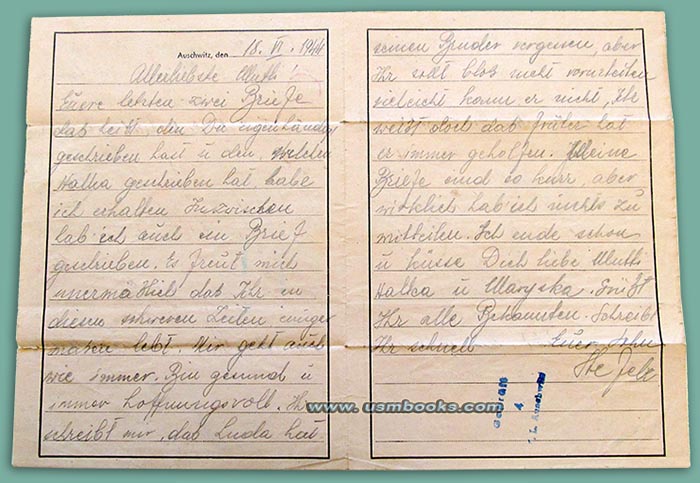 Auschwitz, den 18. VI. 1944
Allerliebste Mutti!
Euere letzten zwei Briefe
das heißt, den Du eigenhändig
geschrieben hast u den, welchen
Halka geschrieben hat, habe
ich erhalten Inzwischen
hab ich auch ein Brief
geschrieben. Es freut mich
unermäßlich das Ihr in
diesen schweren Zeiten einiger
massen lebt. Mir geht auch
wie immer. Bin gesund u
immer hoffnungsvoll. Ihr
schreibt mir, das Luda hat
seinen Bruder vergessen, aber
Ihr sollt blos nicht
vieleicht kann er nicht, Ihr
weißt doch das früher hat
er immer geholfen. Meine
Briefe sind so kurz, aber
wirklich hab ich nichts zu
mitteilen. Ich ende schon
u küsse Dich liebe Mutti
Halka u Maryska. Grüßt
Ihr alle Bekannten. Schreibt
Ihr schnell Euer Sohn
Geprüft
4
K. L. Auschwitz
www.usmbooks.com